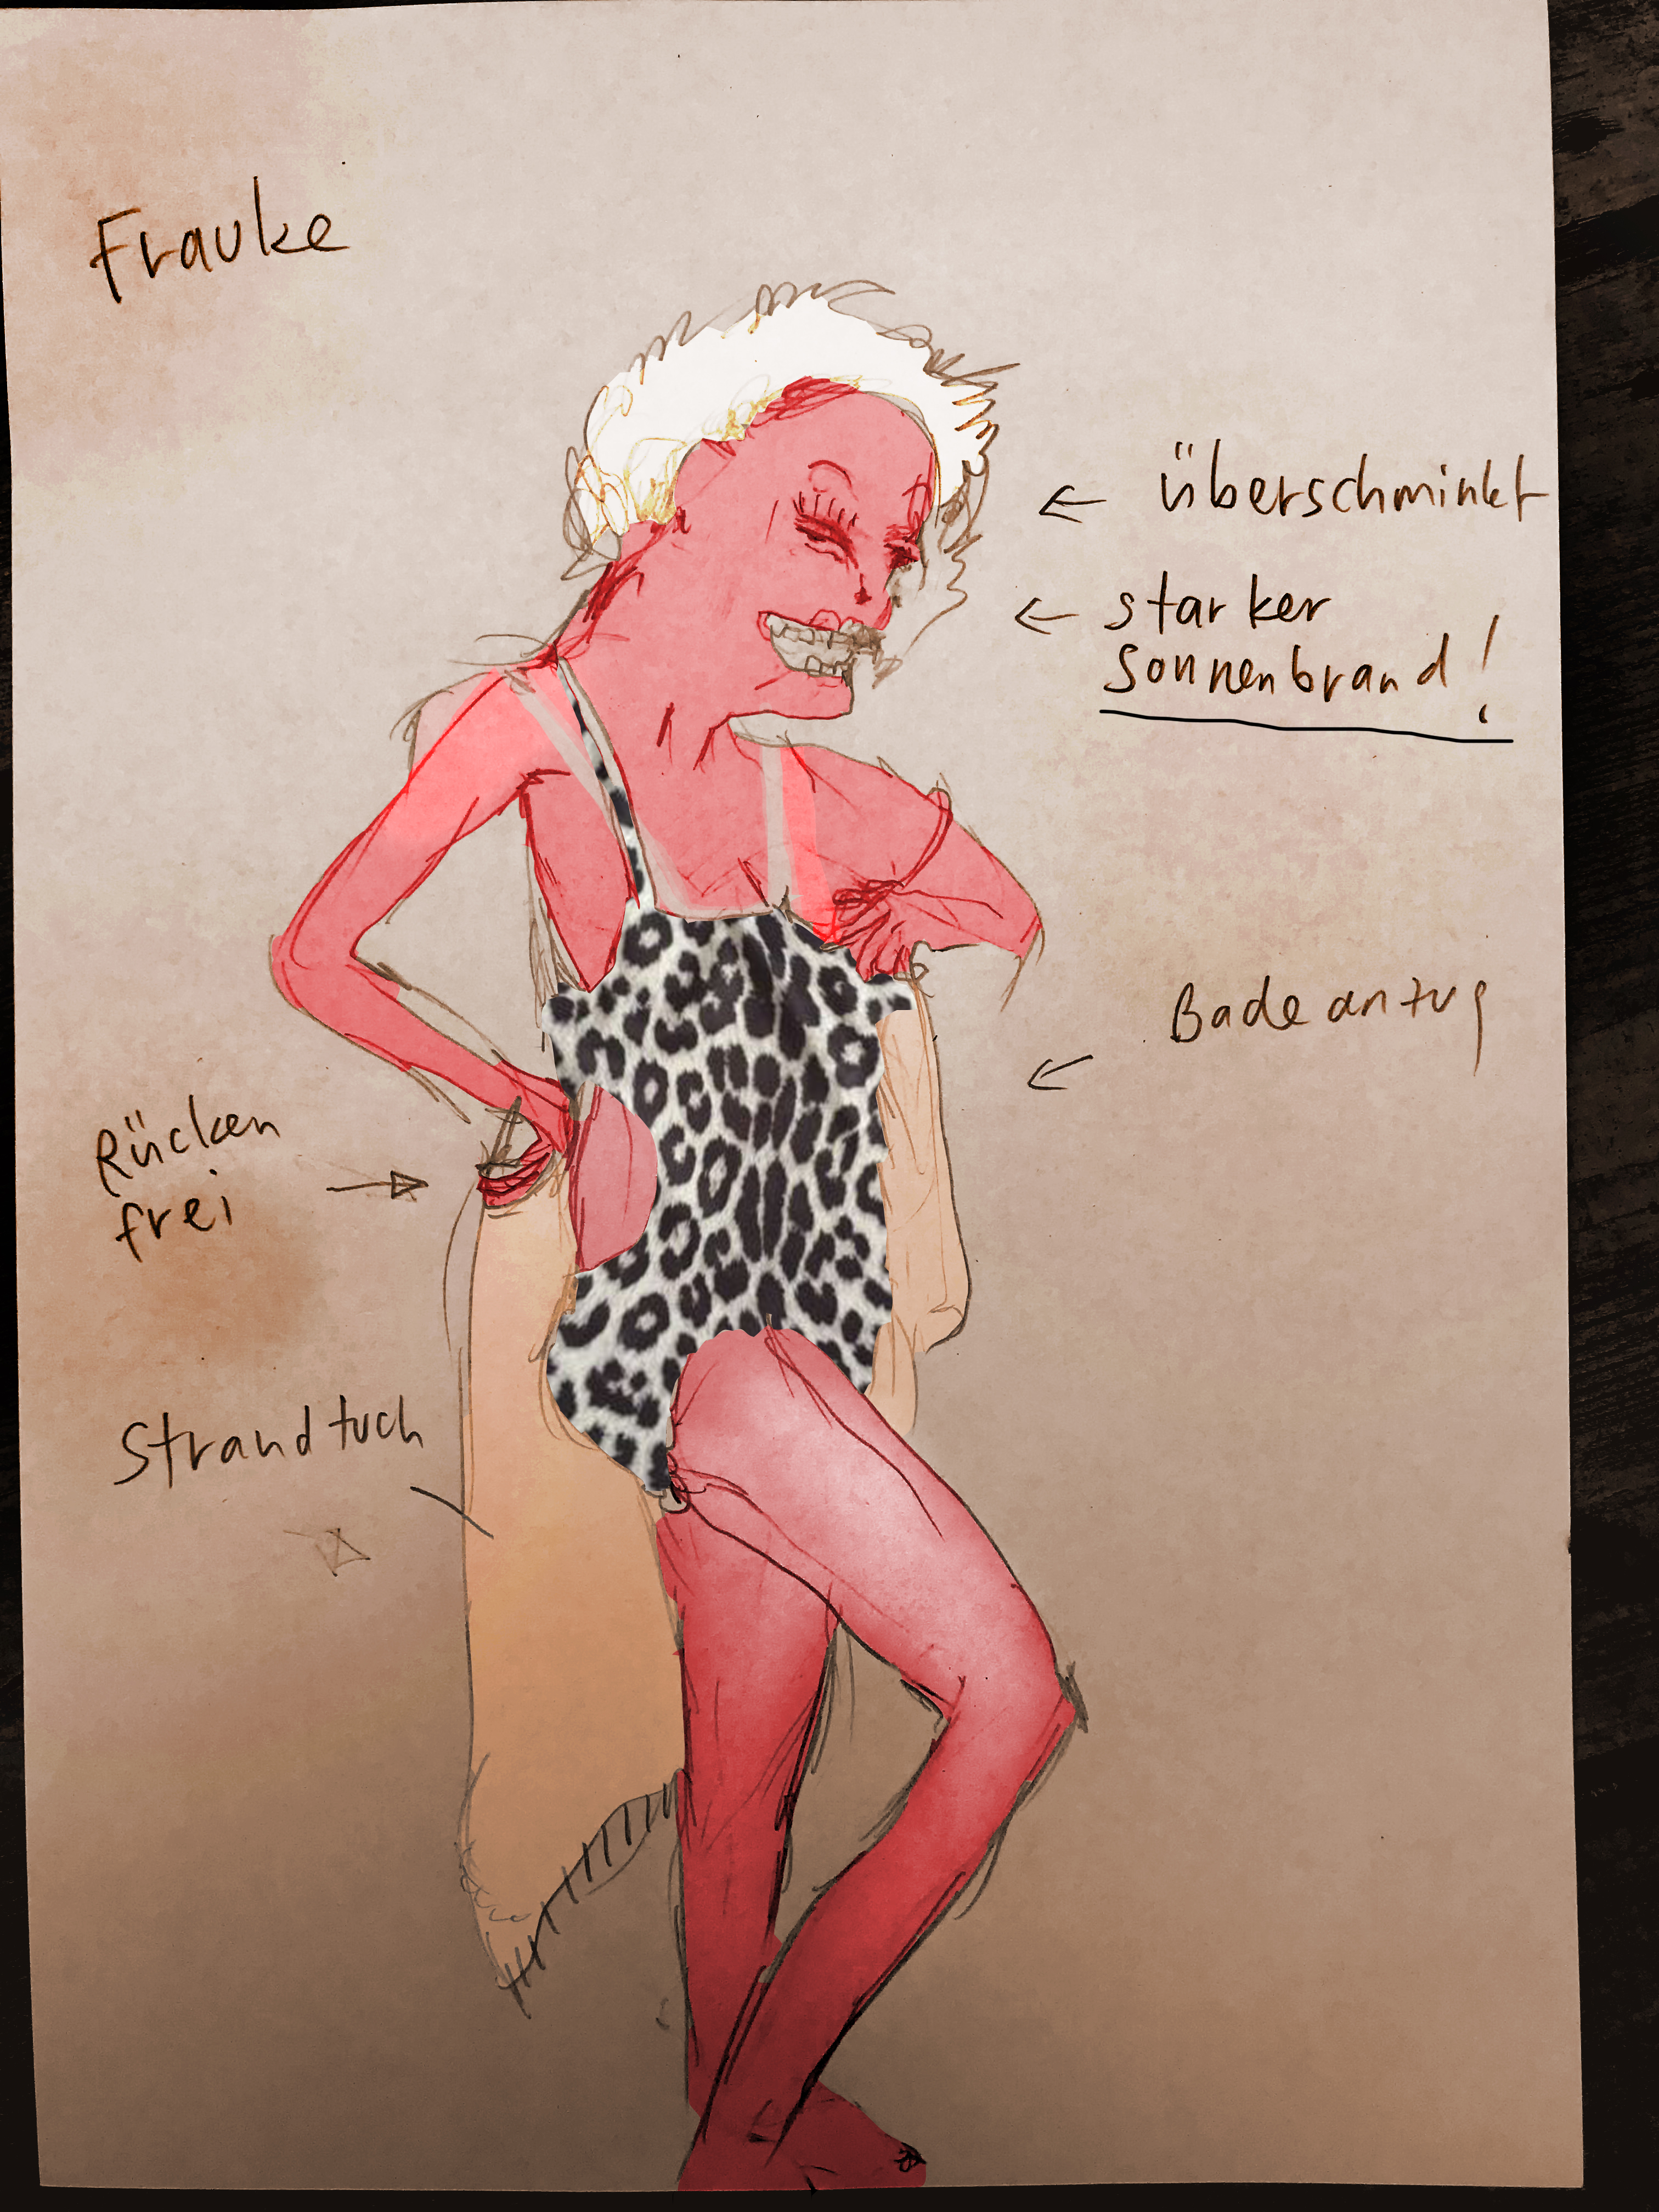 Frauke
überschminkt
starker
Sonnenbrand!
Badeanzug
Rücken
frei
Strandtuch